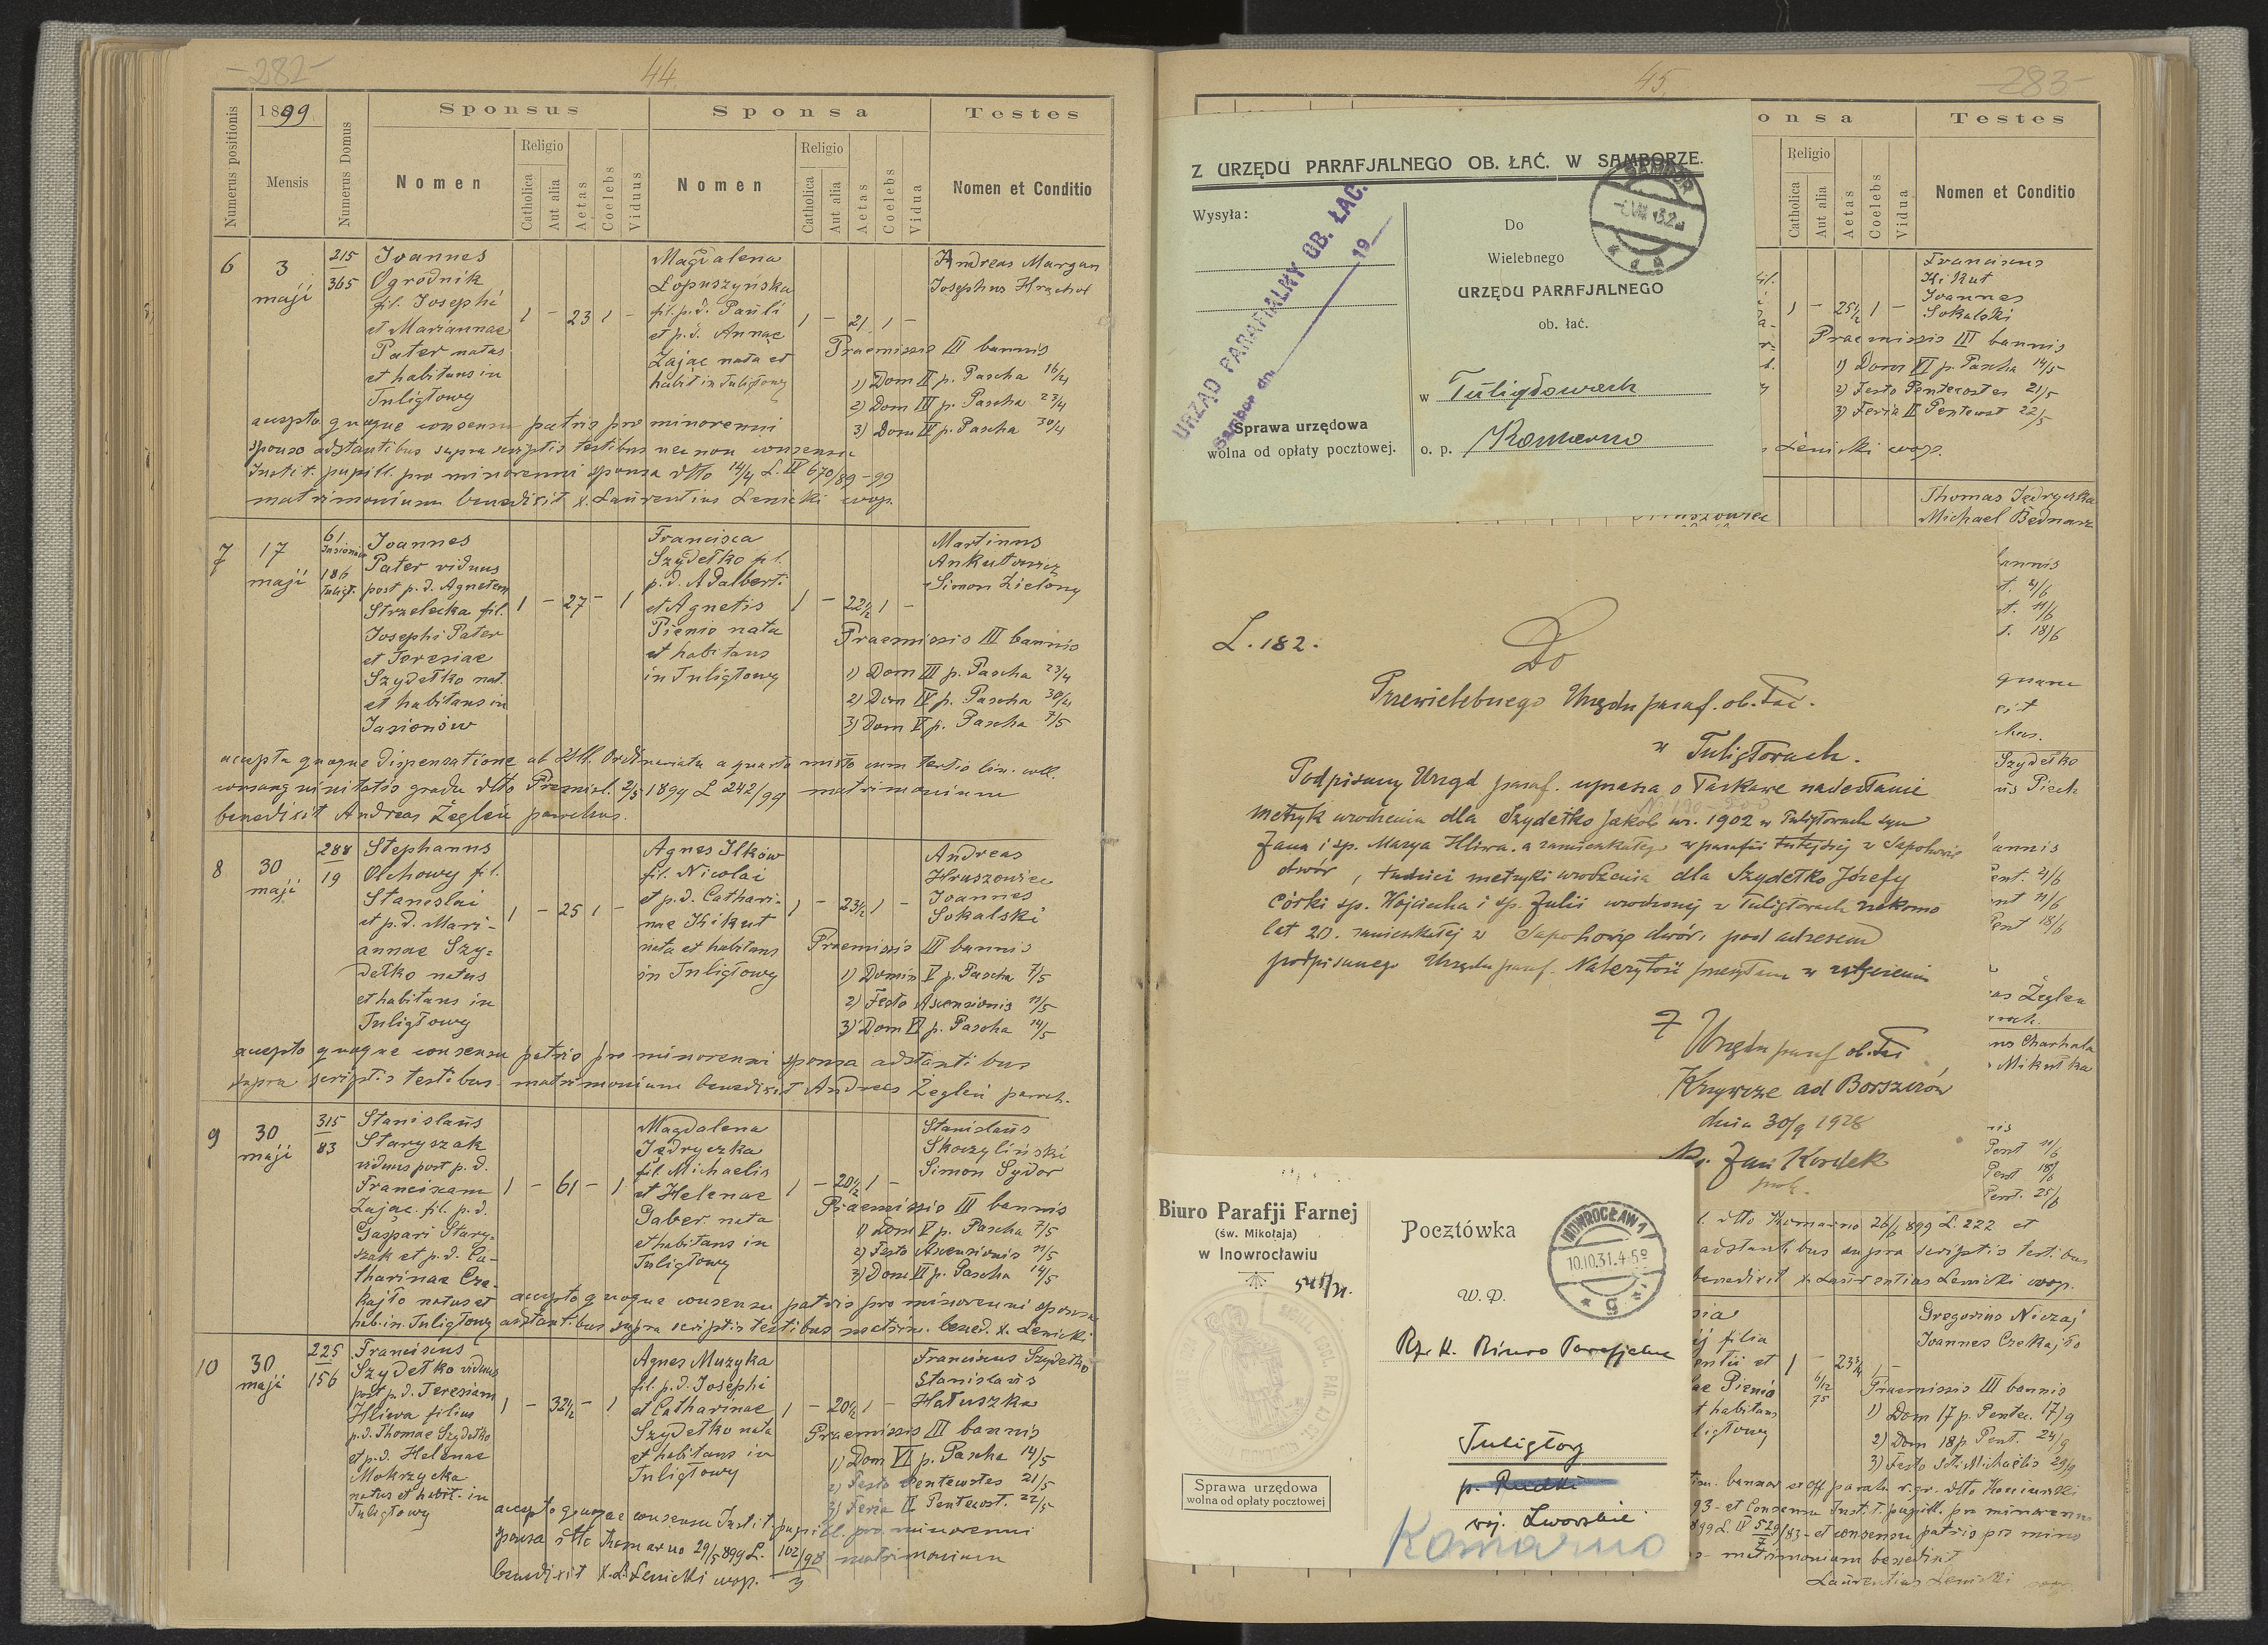 - 282 -
44.
1899
Sponsus
Sponsa
Testes
Numerus positionis
Mensis
Numerus Domus
Nomen
Religio
Catholica
Aut alia
Aetas
Coelebs
Viduus
Nomen
Religio
Catholica
Aut alia
Aetas
Coelebs
Vidua
Nomen et Conditio
6
3
maji
215
365
Joannes
Ogrodnik
fil. Josephi
et Mariannae
Pater natus
et habitans in
Tuligłowy
1 - 23 1 -
Magdalena
Łopuszyńska
fil. p.d. Pauli
et p.d. Annae
Zając nata et
habit in Tuligłowy
1 - 21 1 -
Andreas Margan
Josephus Hrachol
Praemissis III bannis
1) Dom II p. Pascha 16/4
2) Dom III p. Pascha 23/4
3) Dom IV p. Pascha 30/4
accepto quoque consensu patris pro minorenni
sponso adstantibus supra scriptis testibus nec non consensu
Instit. pupill. pro minorenni sponsa dtto 14/4 L. IV 670/89 - 99
matrimonium benedixit x. Laurentius Lenicki coop.
7
17
maji
61
Jasionów
186
Tuligł.
Joannes
Pater viduus
post p.d. Agnetem
Strzelecka fil.
Josephi Pater
et Teresiae
Szydełko nat.
et habitans in
Jasionów
1 - 27 - 1
Francisca
Szydełko fil.
p.d. Adalberti
et Agnetis
Pienio nata
et habitans
in Tuligłowy
1 - 22 1/2 1 -
Martinus
Ankutowicz
Simon Zielony
Praemissis III bannis
1) Dom III p. Pascha 23/4
2) Dom IV p. Pascha 30/4
3) Dom V p. Pascha 7/5
accepta quoque dispensatione ab Ill. Ordinariatu a quarto mixto cum tertio lin. coll.
consanguinitatis gradu dtto Premisl. 2/5 1899 L 242/99 matrimonium
benedixit Andreas Żegleń parochus.
8
30
maji
288
19
Stephanus
Olchowy fil.
Stanislai
et p.d. Mari-
annae Szy-
dełko natus
et habitans in
Tuligłowy
1 - 25 1 -
Agnes Ilków
fil. Nicolai
et p.d. Cathari-
nae Kikut
nata et habitans
in Tuligłowy
1 - 23 1/2 1 -
Andreas
Hruszowiec
Joannes
Sokalski
Praemissis III bannis
1) Domin V p. Pascha 7/5
2) Festo Ascensionis 11/5
3) Dom VI p. Pascha 14/5
accepto quoque consensu patris pro minorenni sponsa adstantibus
supra scriptis testibus matrimonium benedixit Andreas Żegleń paroch.
9
30
maji
315
83
Stanislaus
Staryszak
viduus post p.d.
Franciscam
Zając fil. p.d.
Gaspari Stary-
szak et p.d. Ca-
tharinae Cze-
kajło natus et
hab. in Tuligłowy
1 - 61 - 1
Magdalena
Jędryczka
fil. Michaelis
et Helenae
Gaber nata
et habitans in
Tuligłowy
1 - 20 1/2 1 -
Stanislaus
Skoczyliński
Simon Sydor
Praemissis III bannis
1) Dom V p. Pascha 7/5
2) Festo Ascensionis 11/5
3) Dom VI p. Pascha 14/5
accepto quoque consensu patris pro minorenni sponsa
adstantibus supra scriptis testibus matrim. bened. x. Lenicki
10
30
maji
225
156
Franciscus
Szydełko viduus
post p.d. Teresiam
Hliwa filius
p.d. Thomae Szydełko
et p.d. Helenae
Mokrzycka
natus et habit. in
Tuligłowy
1 - 32 1/2 - 1
Agnes Muzyka
fil. p.d. Josephi
et Catharinae
Szydełko nata
et habitans in
Tuligłowy
1 - 20 1/2 1 -
Franciscus Szydełko
Stanislaus
Hałuszka
Praemissis III bannis
1) Dom VI p. Pascha 14/5
2) Festo Pentecostes 21/5
3) Feria II Pentecost. 22/5
accepto quoque consensu Instit. pupill. pro minorenni
sponsa dtto Komarno 29/5 899 L. 102/98 matrimonium
3
benedixit x. L. Lenicki coop.
45.
283 -
onsa
Testes
Religio
Catholica
Aut alia
Aetas
Coelebs
Vidua
Nomen et Conditio
Z URZĘDU PARAFJALNEGO OB. ŁAĆ. W SAMBORZE.
Wysyła:
URZĄD PARAFIALNY OB. ŁAC.
Sambor dn. 19
SAMBOR
Do
Wielebnego
URZĘDU PARAFJALNEGO
ob. łać.
w Tuligłowach
o. p. Komarno
Sprawa urzędowa
wolna od opłaty pocztowej.
Franciscus
Kikut
Joannes
Sokalski
1 - 25 1/2 1 -
Praemissis III bannis
1) Dom VI p. Pascha 14/5
2) Festo Pentecostes 21/5
3) Feria II Pentecost 22/5
Lenicki coop.
Thomas Jędryczka
Michael Bednarz
L. 182.
Do
Przewielebnego Urzędu paraf. ob. łac.
w Tuligłowach.
Podpisany Urząd paraf. uprasza o łaskawe nadesłanie
metryk urodzenia dla Szydełko Jakób ur. 1902 w Tuligłowach syn
Jana i śp. Marya Hliwa. a zamieszkałego w parafii tutejszej w Sapohowie
dwór, tudzież metryki urodzenia dla Szydełko Józefy
córki śp. Wojciecha i śp. Julii urodzonej w Tuligłowach rzekomo
lat 20. zamieszkałej w Sapohowie dwór, pod adresem
podpisanego Urzędu paraf. Należytość przesyłam w załączeniu
Z Urzędu paraf. ob. łać
Krzywcze ad Borszczów
dnia 30/9 1928
Ks. Jan Kordek
prob.
bannis
4/6
11/6
18/6
Szydełko
Piech
annis
Pent. 4/6
Pent 11/6
Pent 18/6
Żegleń
paroch.
Charhala
Mikułka
Pent 11/6
Pent 18/6
Pent. 25/6
Biuro Parafji Farnej
(św. Mikołaja)
w Inowrocławiu
Sprawa urzędowa
wolna od opłaty pocztowej
Pocztówka
INOWROCŁAW 1
10.10.31.4-5
g
W. P.
Rz. K. Biuro Parafjalne
Tuligłowy
p. Rudki
woj. Lwowskie
Komarno
dtto Komarno 26/6 899 L. 222 et
adstantibus supra scriptis testibus
benedixit x. Laurentius Lenicki coop.
filia
1 - 23 3/4 1 -
6/12
75
Pienio
t habitans
ligłowy
Gregorius Niczaj
Joannes Czekajło
Praemissis III bannis
1) Dom 17 p. Pentec. 17/9
2) Dom 18 p. Pent. 24/9
3) Festo Sti Michaelis 29/9
93 - et Consensu Instit. pupill. pro minorenni
899 L. IV 529/83 - et consensu patris pro mino
matrimonium benedixit
Laurentius Lenicki coop.